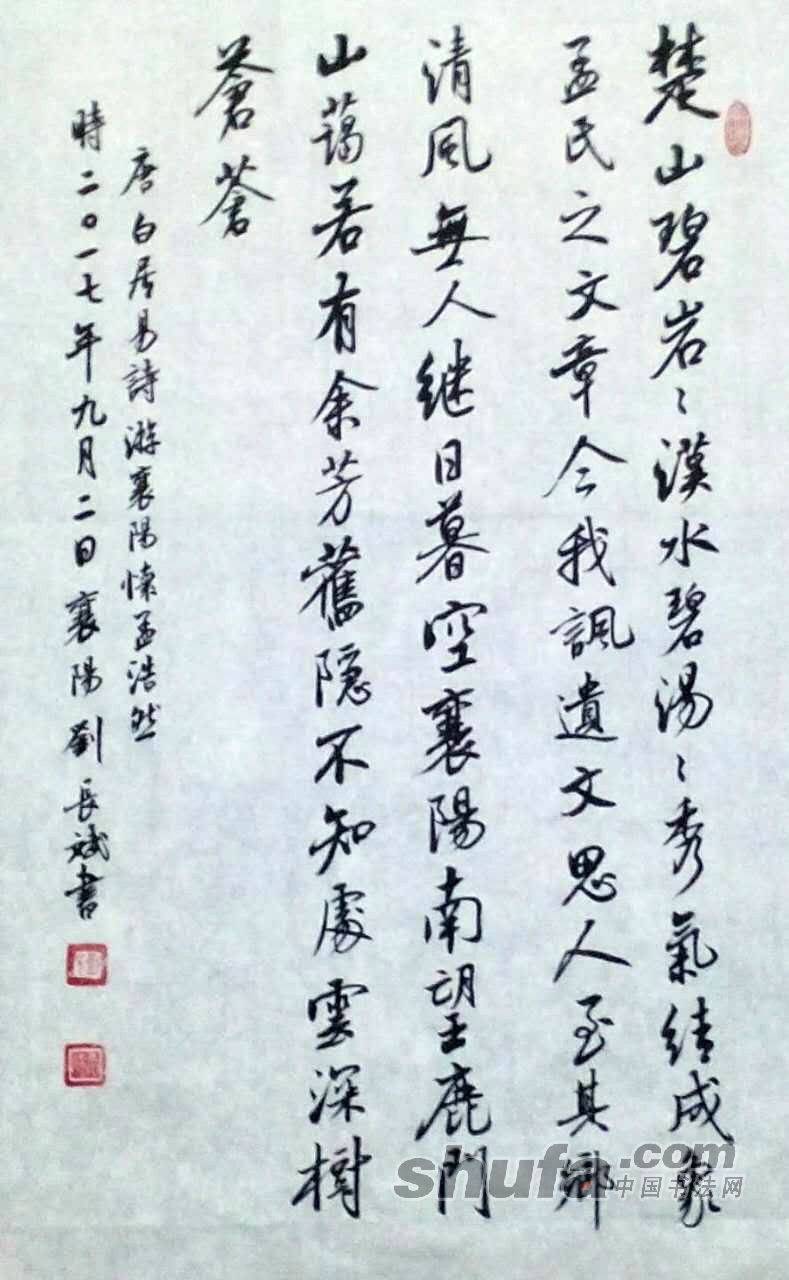 楚山碧岩〻漢水碧湯〻秀氣結成象
孟氏之文章今我諷遺文思人至其鄉
清風無人继日暮空襄陽南望鹿門
山藹若有余芳舊隐不知處雲深樹
蒼蒼
唐白居易詩游襄陽懷孟浩然
時二〇一七年九月二日襄陽劉長斌書
shufa.com
中国书法网